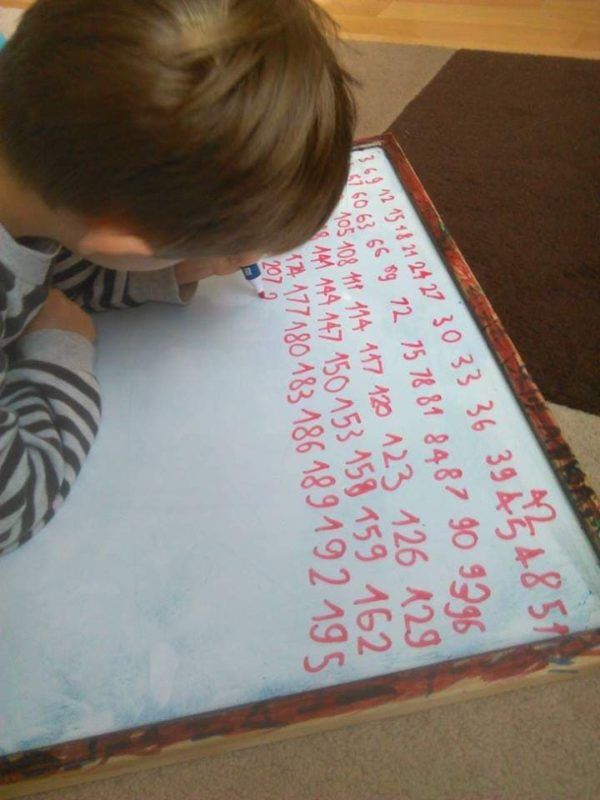 3 6 9 12 15 18 21 24 27 30 33 36 39 42 45 48 51
57 60 63 66 69 72 75 78 81 84 87 90 93 96
105 108 111 114 117 120 123 126 129
141 144 147 150 153 156 159 162
174 177 180 183 186 189 192 195
207 2